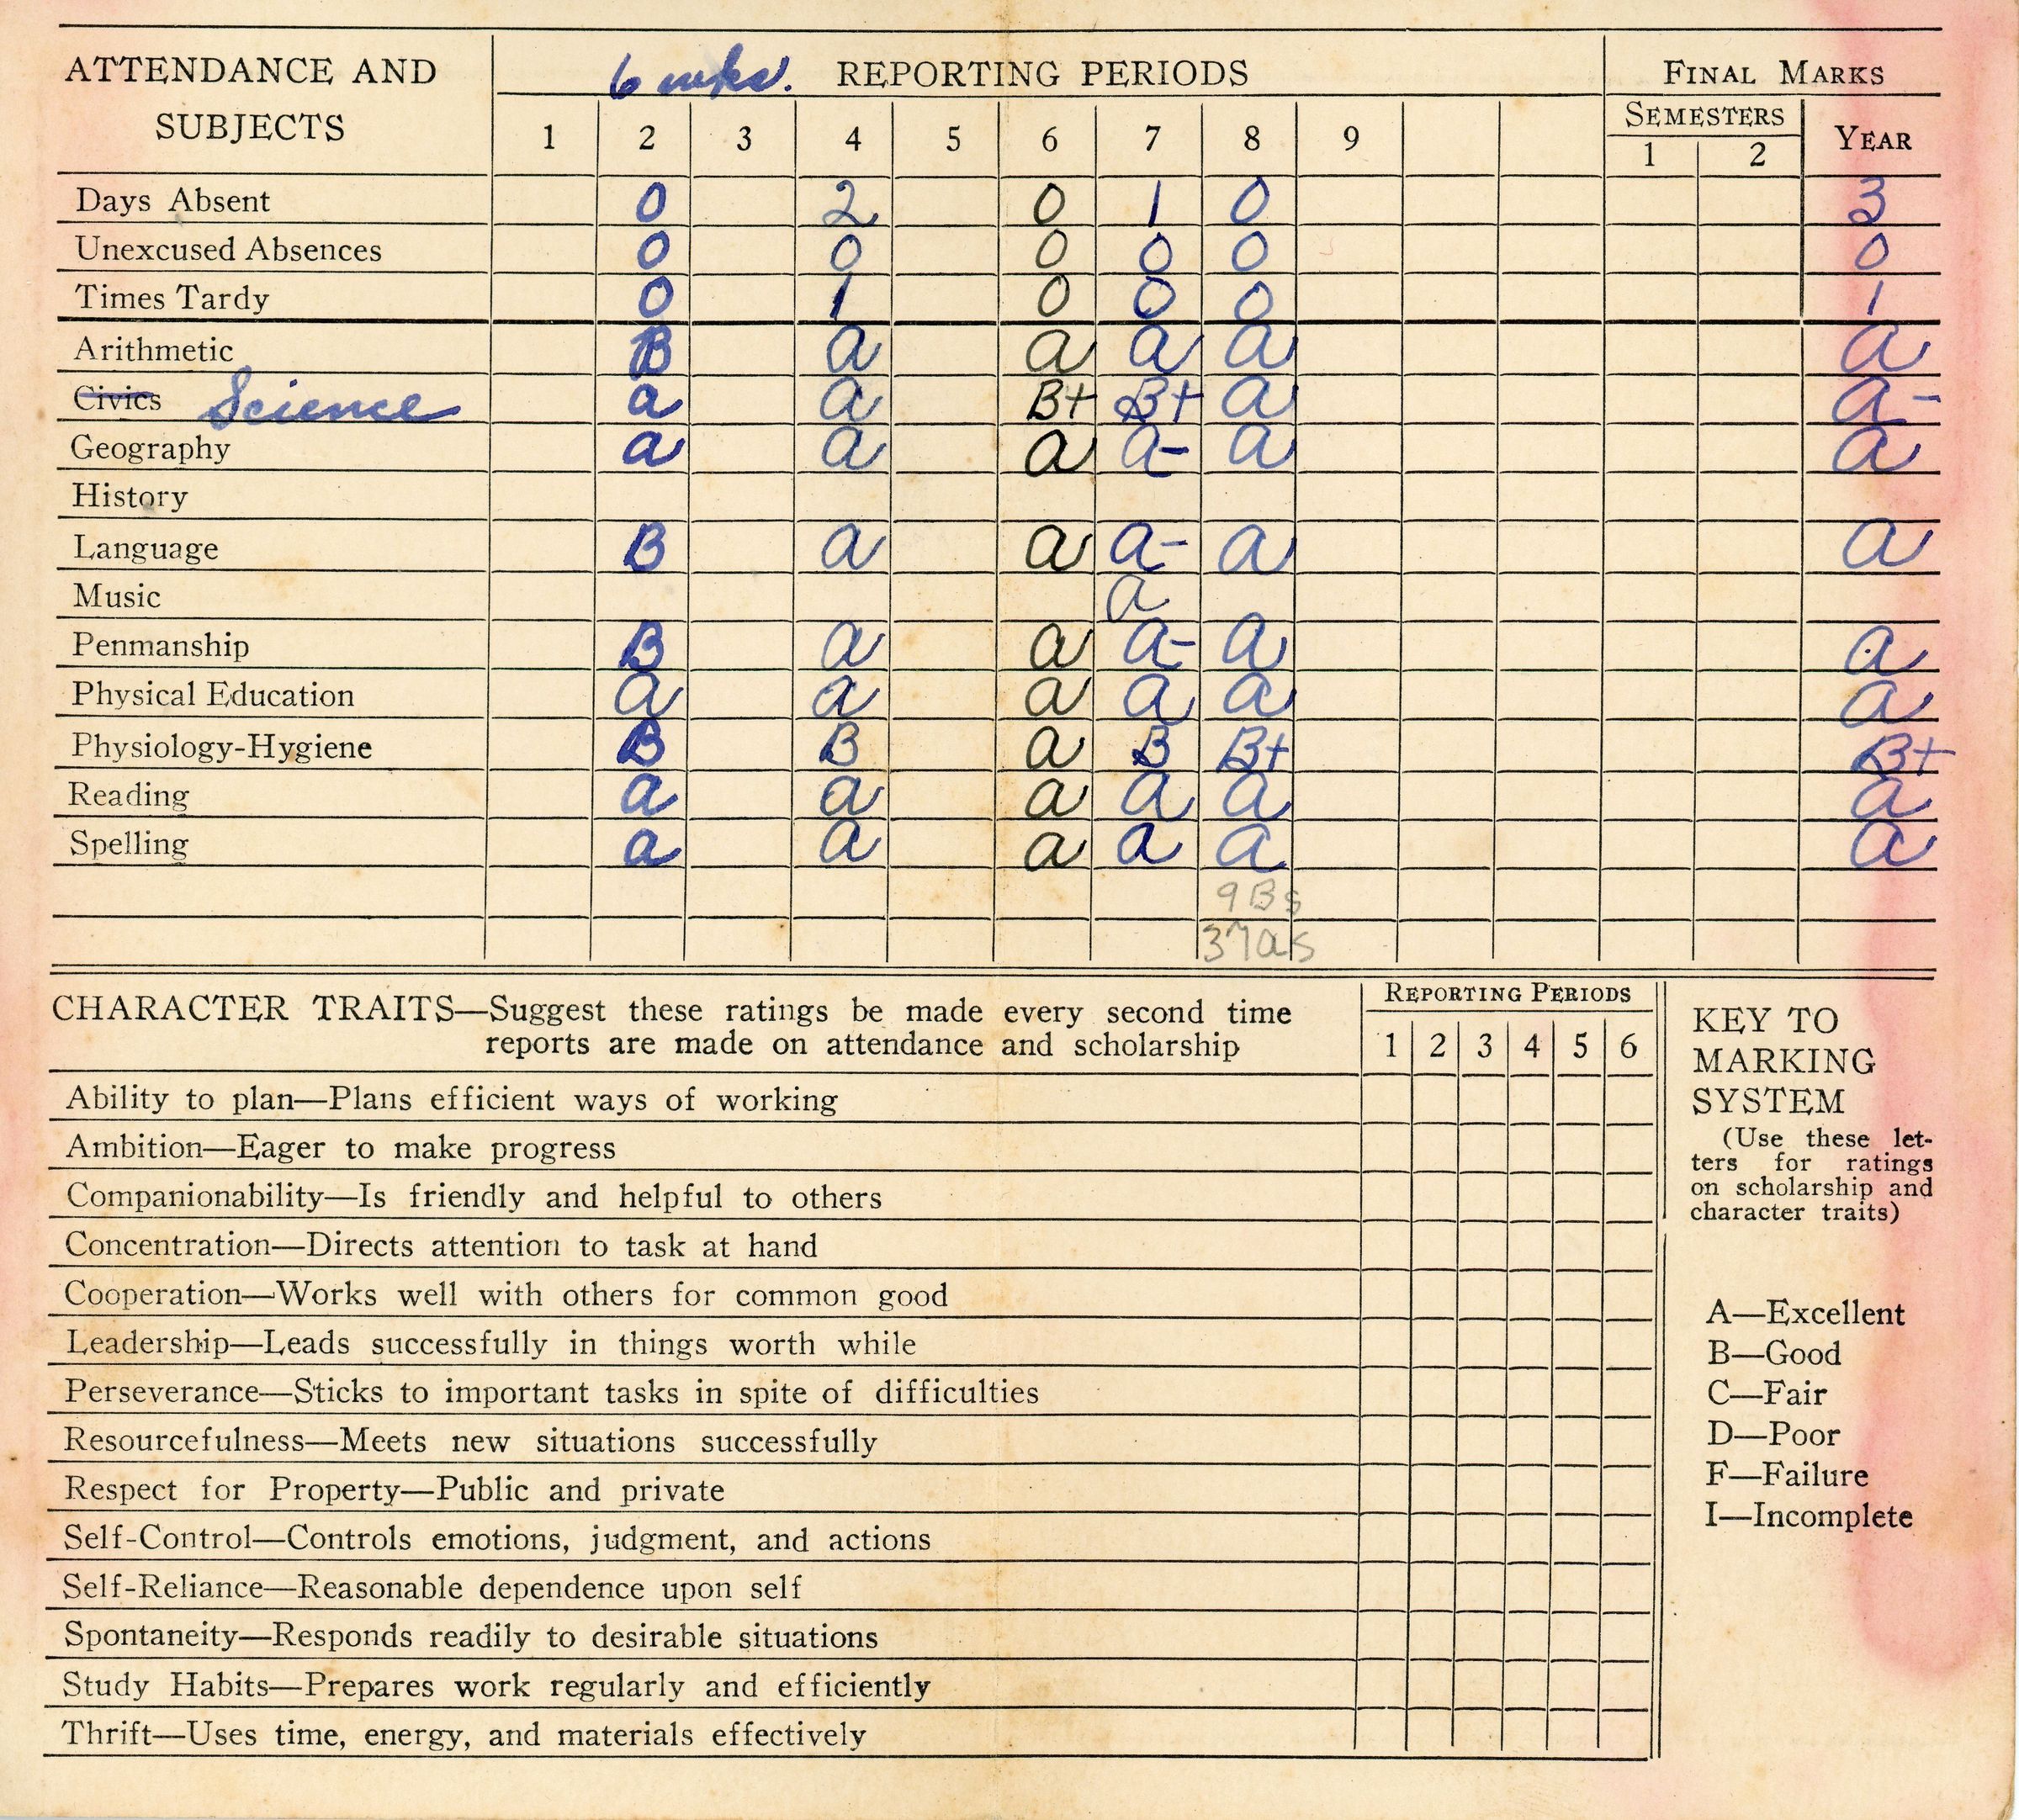 ATTENDANCE AND SUBJECTS
6 wks. REPORTING PERIODS
FINAL MARKS
SEMESTERS
YEAR
1 2 3 4 5 6 7 8 9 1 2
Days Absent 0 2 0 1 0 3
Unexcused Absences 0 0 0 0 0 0
Times Tardy 0 1 0 0 0 1
Arithmetic B a a a a a
Civics Science a a B+ B+ a a-
Geography a a a a- a a
History
Language B a a a- a a
Music a
Penmanship B a a a- a a
Physical Education a a a a a a
Physiology-Hygiene B B a B B+ B+
Reading a a a a a a
Spelling a a a a a a
9 Bs
37 as
CHARACTER TRAITS—Suggest these ratings be made every second time
reports are made on attendance and scholarship
REPORTING PERIODS
1 2 3 4 5 6
Ability to plan—Plans efficient ways of working
Ambition—Eager to make progress
Companionability—Is friendly and helpful to others
Concentration—Directs attention to task at hand
Cooperation—Works well with others for common good
Leadership—Leads successfully in things worth while
Perseverance—Sticks to important tasks in spite of difficulties
Resourcefulness—Meets new situations successfully
Respect for Property—Public and private
Self-Control—Controls emotions, judgment, and actions
Self-Reliance—Reasonable dependence upon self
Spontaneity—Responds readily to desirable situations
Study Habits—Prepares work regularly and efficiently
Thrift—Uses time, energy, and materials effectively
KEY TO
MARKING
SYSTEM
(Use these let-
ters for ratings
on scholarship and
character traits)
A—Excellent
B—Good
C—Fair
D—Poor
F—Failure
I—Incomplete